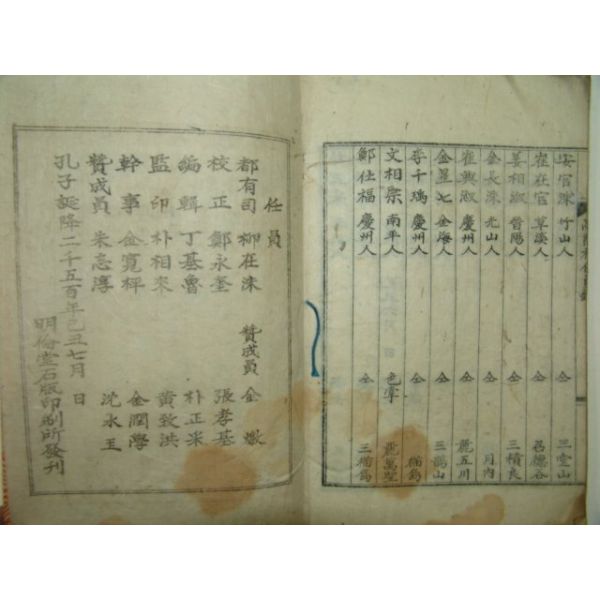 安官洙 竹山人 仝 三堂山
崔在官 草溪人 仝 呂德谷
姜相淑 晋陽人 仝 三積良
金長洙 光山人 仝 月內
崔 淑 慶州人 仝 龍五川
金星七 金海人 仝 三鶴山
李千瑀 慶州人 仝 楠
文相 南平人 色掌 龍萬
鄭仕福 慶州人 仝 三楠
任員
都有司 柳在洙 贊成員 金
校正 鄭永奎 張孝基
編輯 丁基魯 朴正采
監印 朴相來 黃致洪
幹事 金寬枰 金潤學
贊成員 朱志淳 沈水王
孔子誕降二千五百年己丑七月 日
明倫堂石版印刷所發刊